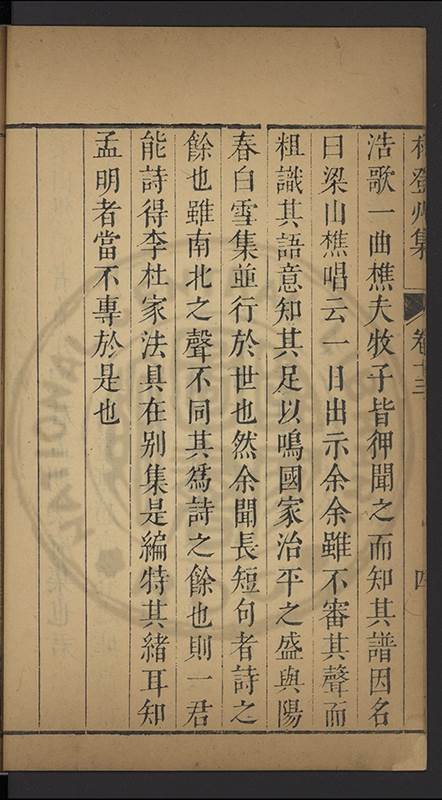 林登州集 卷十三 四
浩歌一曲樵夫牧子皆狎聞之而知其譜因名
曰梁山樵唱云一日出示余余雖不審其聲而
粗識其語意知其足以鳴國家治平之盛與陽
春白雪集並行於世也然余聞長短句者詩之
餘也雖南北之聲不同其為詩之餘也則一君
能詩得李杜家法具在别集是編特其緒耳知
孟明者當不專於是也